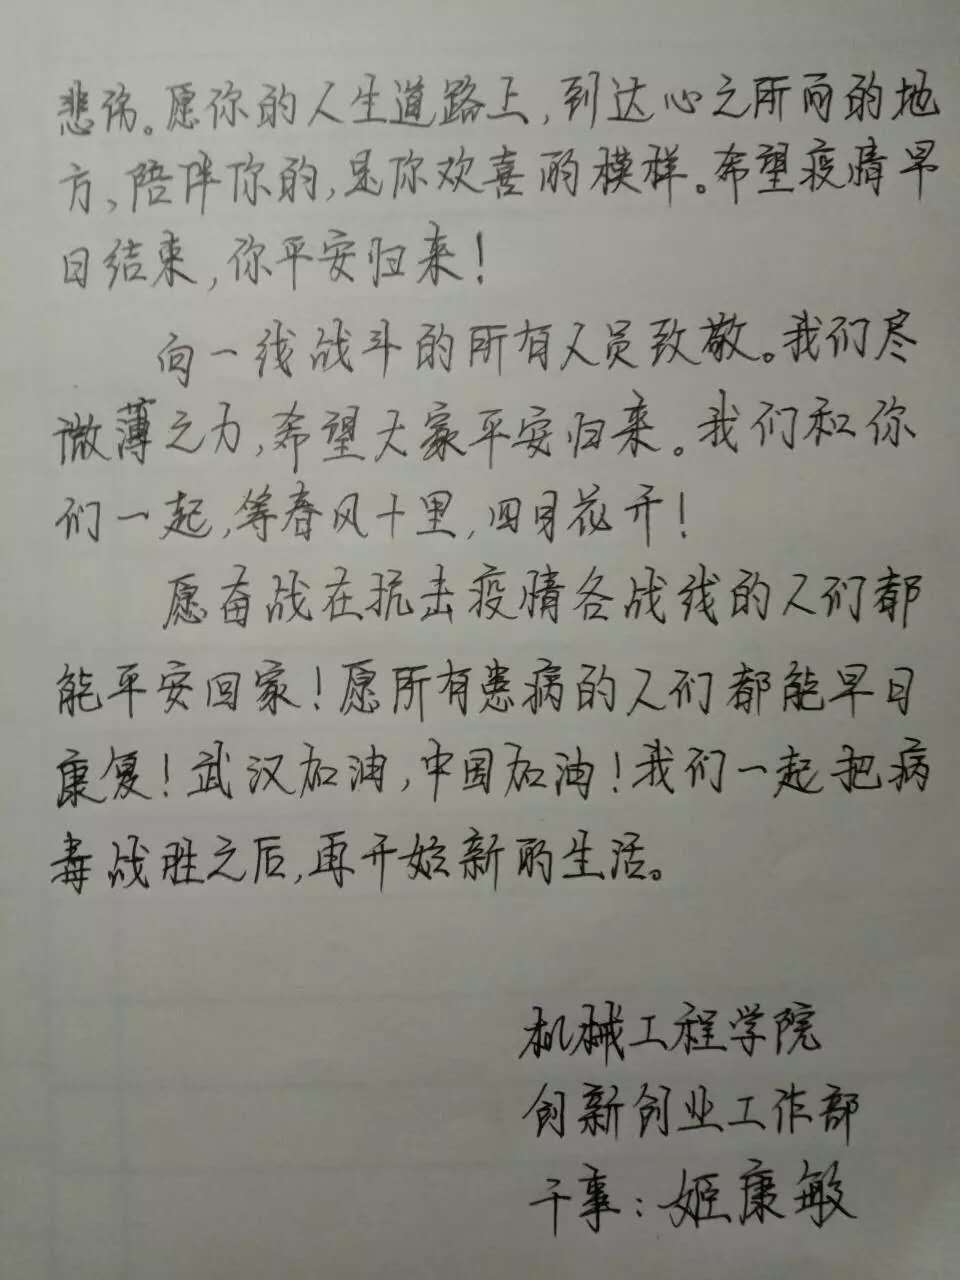 悲伤。愿你的人生道路上,到达心之所向的地
方,陪伴你的,是你欢喜的模样。希望疫情早
日结束,你平安归来!
向一线战斗的所有人员致敬。我们尽
微薄之力,希望大家平安归来。我们和你
们一起,等春风十里,四月花开!
愿奋战在抗击疫情各战线的人们都
能平安回家!愿所有患病的人们都能早日
康复!武汉加油,中国加油!我们一起把病
毒战胜之后,再开始新的生活。
机械工程学院
创新创业工作部
干事:姬康敏